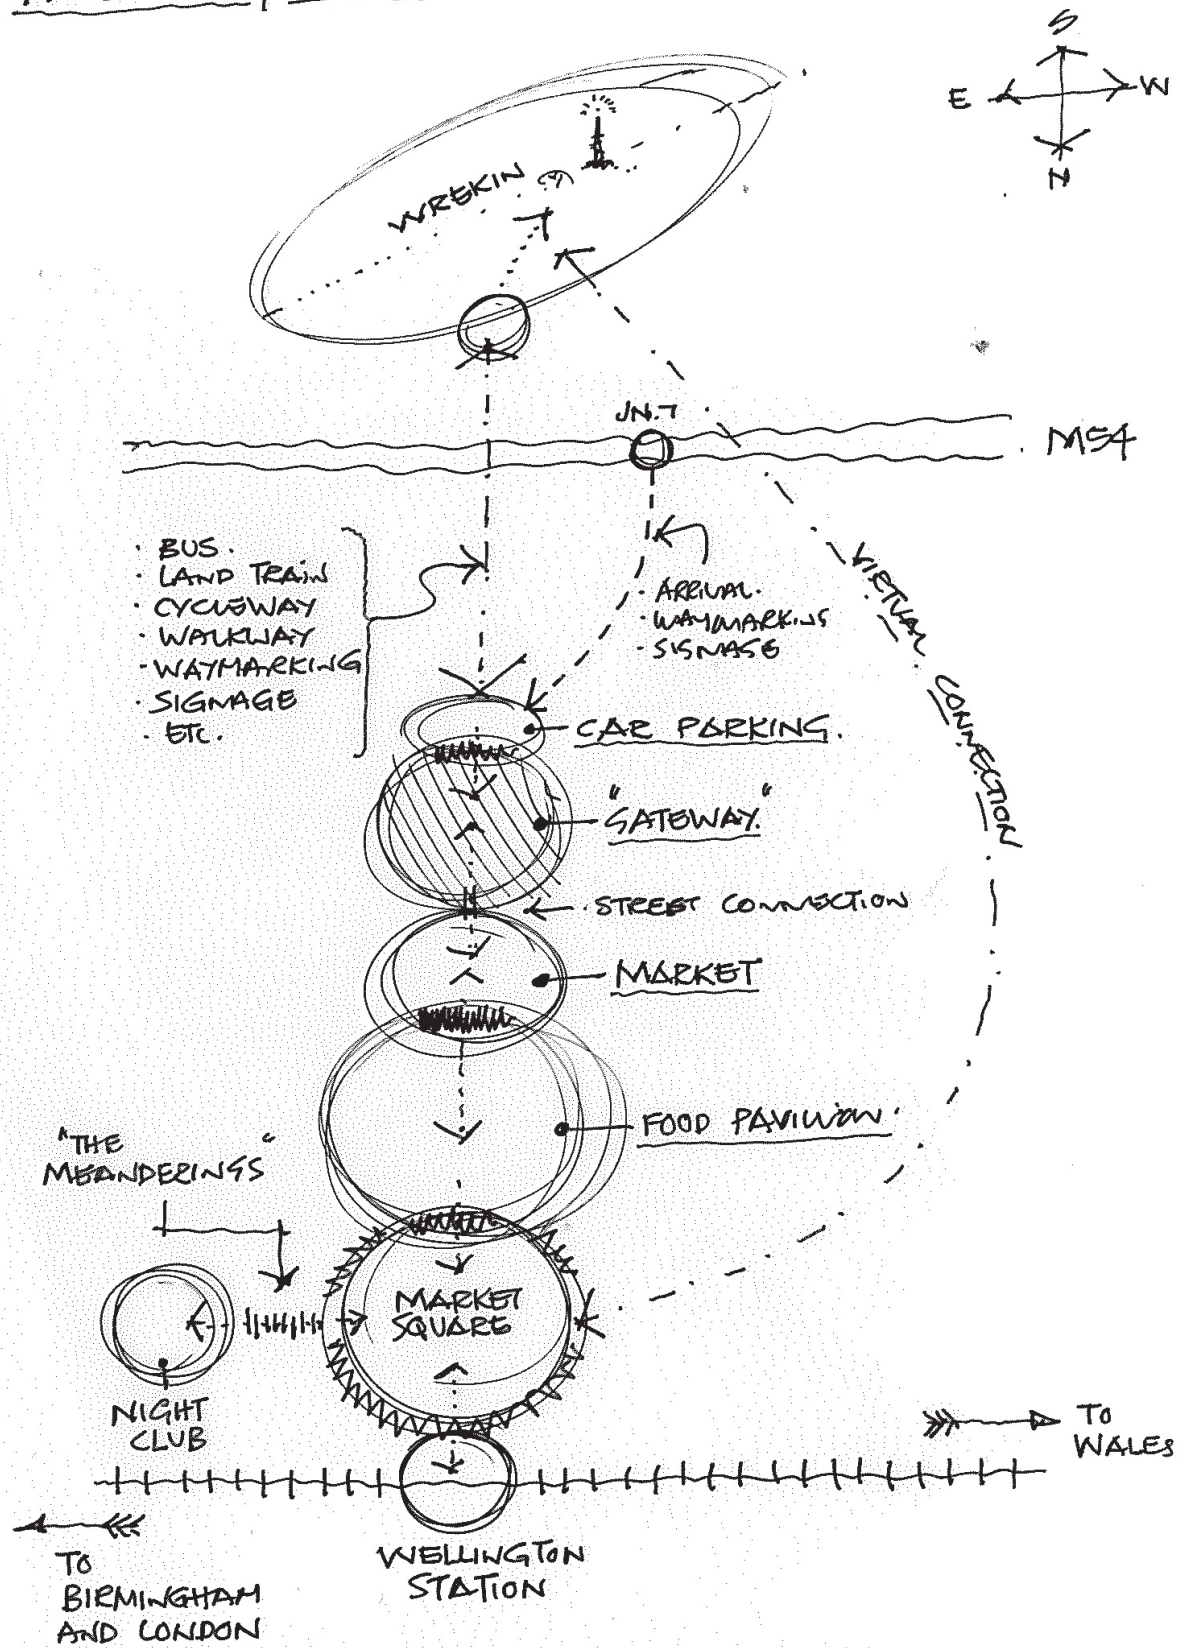 S
E
W
N
WREKIN
JN.7
M54
· BUS.
· LAND TRAIN
· CYCLEWAY
· WALKWAY
· WAYMARKING
· SIGNAGE
· ETC.
· ARRIVAL.
· WAYMARKING
· SIGNAGE
VIRTUAL CONNECTION
CAR PARKING.
"GATEWAY."
· STREET CONNECTION
MARKET
FOOD PAVILION.
"THE
MEANDERINGS"
MARKET
SQUARE
NIGHT
CLUB
TO
WALES
TO
BIRMINGHAM
AND LONDON
WELLINGTON
STATION